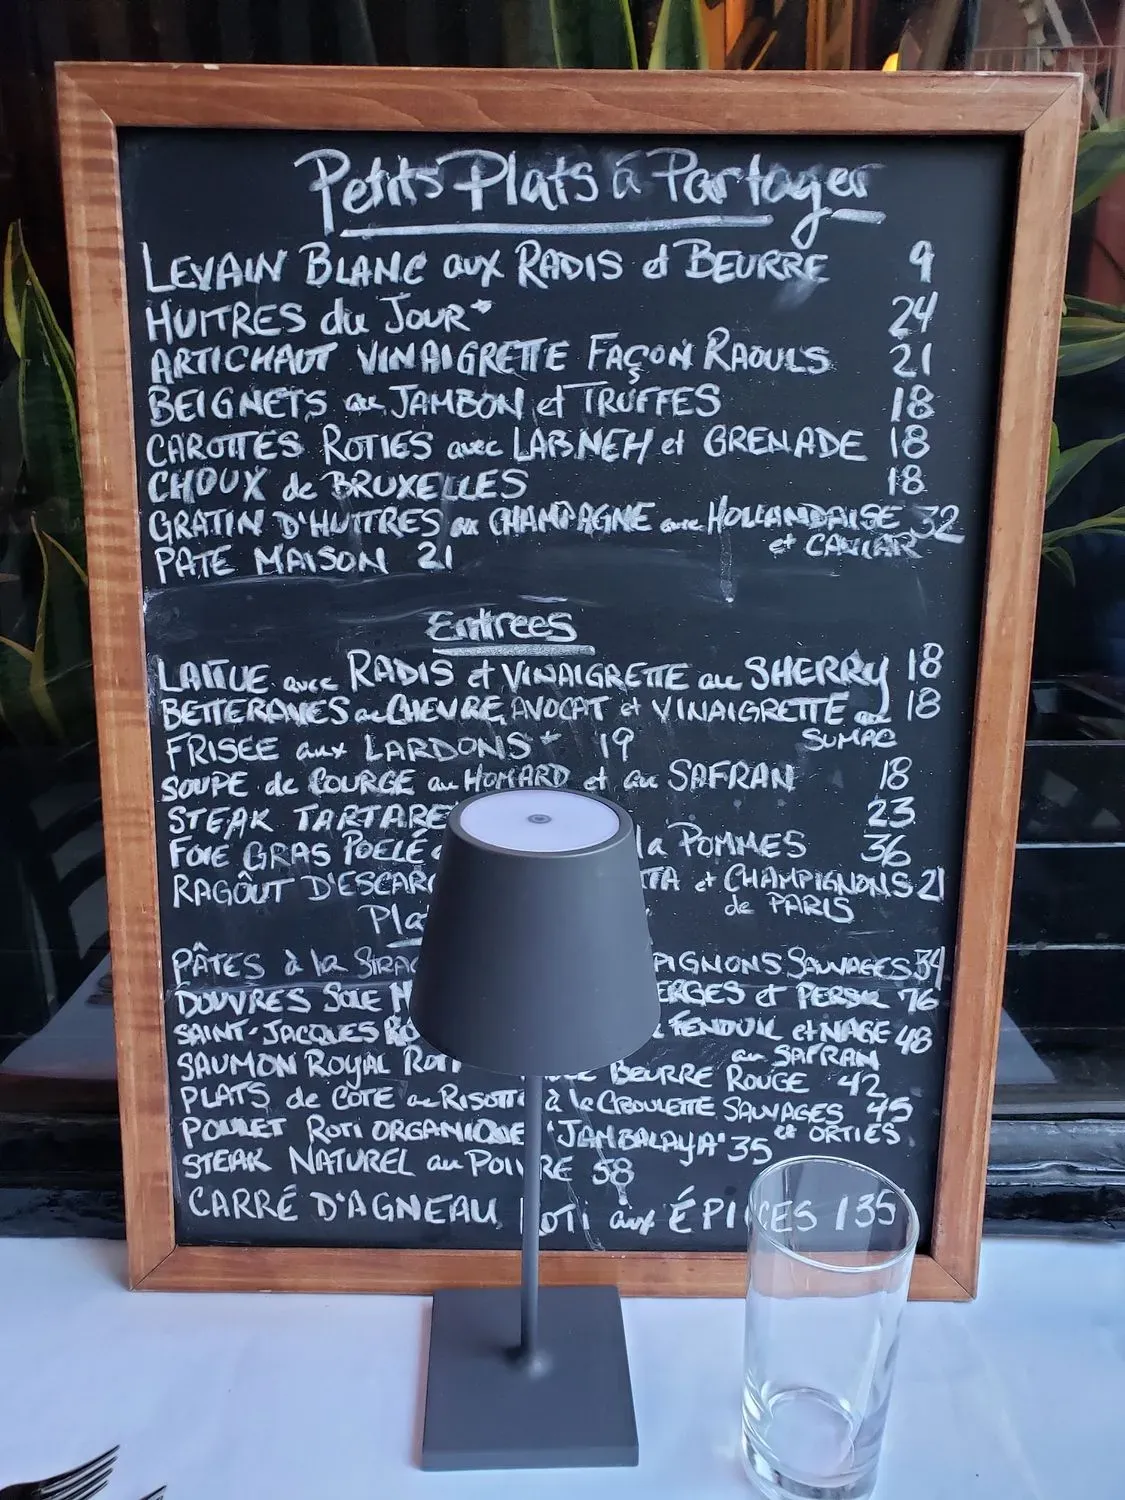 Petits Plats à Partager
LEVAIN BLANC aux RADIS et BEURRE 9
HUITRES du JOUR* 24
ARTICHAUT VINAIGRETTE FAÇON RAOULS 21
BEIGNETS au JAMBON et TRUFFES 18
CAROTTES ROTIES avec LABNEH et GRENADE 18
CHOUX de BRUXELLES 18
GRATIN D'HUITRES au CHAMPAGNE avec HOLLANDAISE 32
et CAVIAR
PATE MAISON 21
Entrees
LAITUE avec RADIS et VINAIGRETTE au SHERRY 18
BETTERAVES au CHEVRE, AVOCAT et VINAIGRETTE au 18
SUMAC
FRISEE aux LARDONS* 19
SOUPE de COURGE au HOMARD et au SAFRAN 18
STEAK TARTARE 23
FOIE GRAS POELÉ la POMMES 36
RAGÔUT D'ESCARG TTA et CHAMPIGNONS 21
de PARIS
Pla
PÂTES à la PIGNONS SAUVAGES 34
DOUVRES SOLE M ERGES et PERSIL 76
SAINT-JACQUES RO FENOUIL et NAGE 48
au SAFRAN
SAUMON ROYAL ROTI BEURRE ROUGE 42
PLATS de COTE au RISOTTO à la CIBOULETTE SAUVAGES 45
et ORTIES
POULET ROTI ORGANIQUE "JAMBALAYA" 35
STEAK NATUREL au POIVRE 58
CARRÉ D'AGNEAU ROTI aux ÉPICES 135